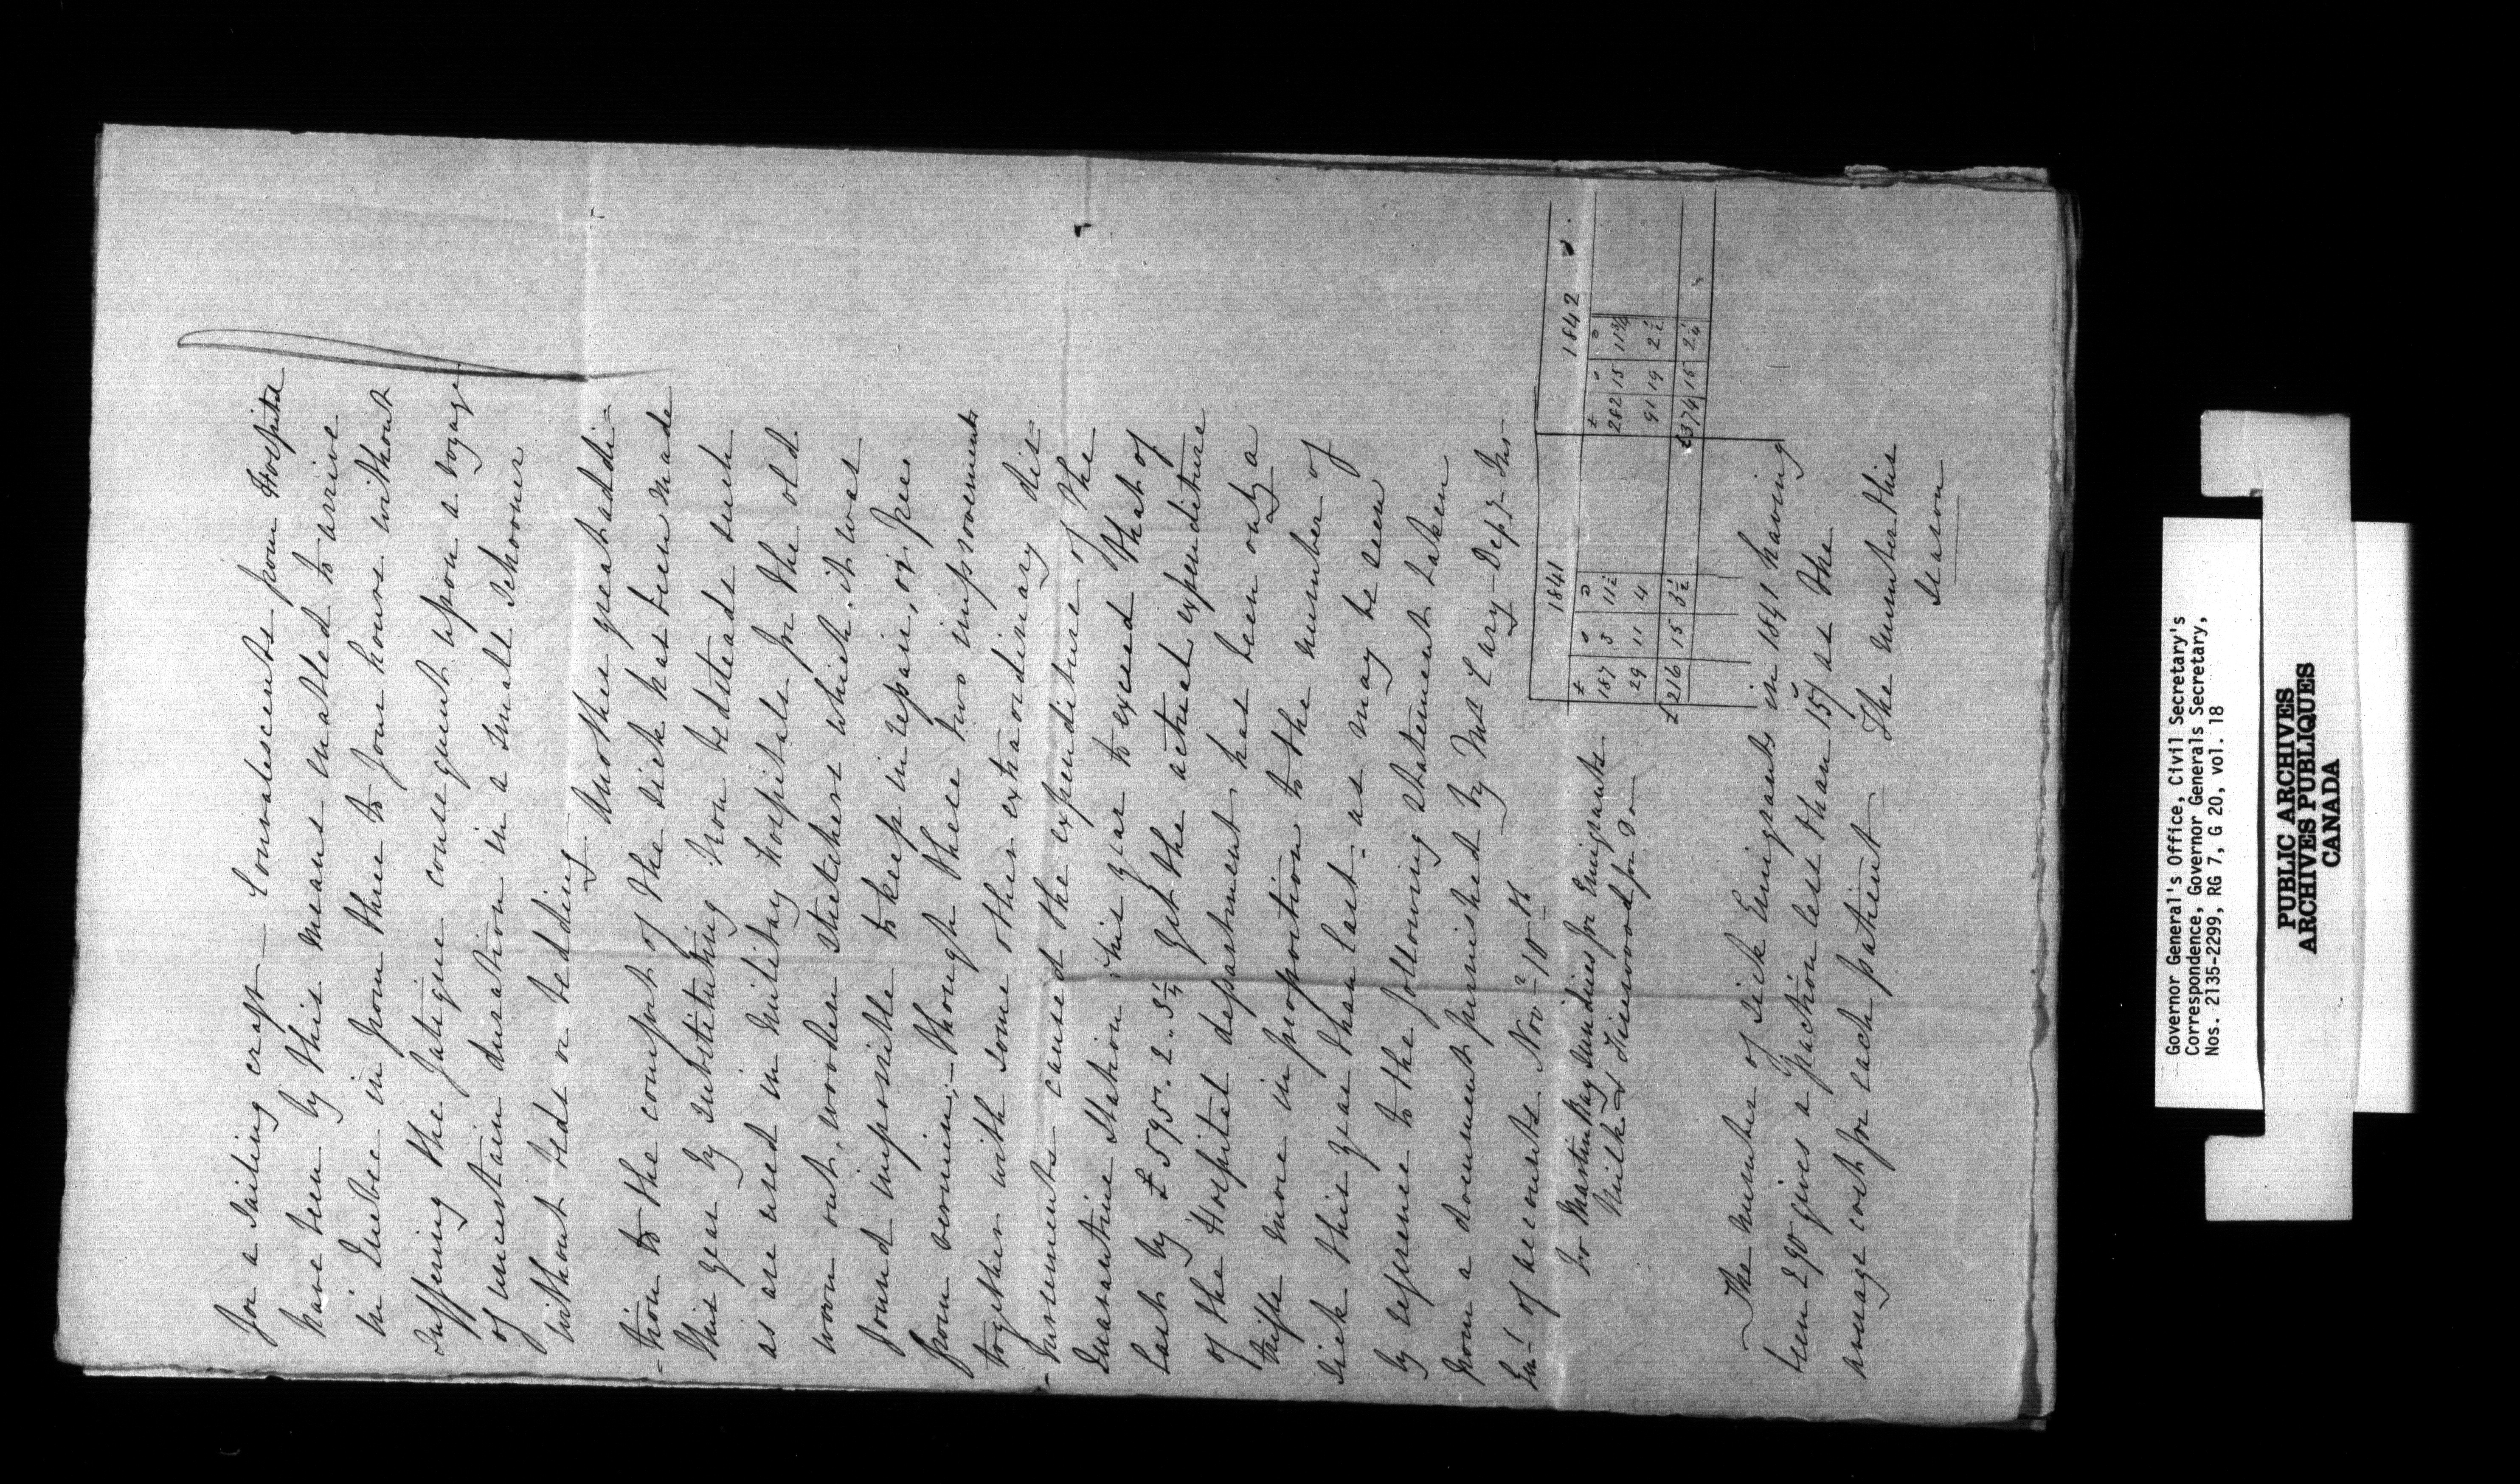 for a sailing craft — Convalescents from Hospital
have been by this means enabled to arrive
in Quebec in from three to four hours without
suffering the fatigue consequent upon a voyage
of uncertain duration in a small Schooner
without beds or bedding.
Another great addi-
-tion to the comfort of the sick has been made
this year by substituting iron bedsteads such
as are used in military hospitals for the old
worn out, wooden stretchers which it was
found impossible to keep in repair, or free
from vermin; — though these two improvements
together with some other extraordinary dis-
-bursements caused the expenditure of the
Quarantine Station this year to exceed that of
last by £595. 2. 5¼ yet the actual expenditure
of the Hospital department, has been only a
trifle more in proportion to the number of
sick this year than last - as may be seen
by reference to the following statement taken
from a document furnished by Mr Cary - Depy Ins-
Genl of accounts Novr 10th
1841 1842
£ s D £ s D
To Martin Ray Sundries for Emigrants 187 3 11½ 282 15 11¾
Milk & Firewood for Do 29 11 4 91 19 2½
£216 15 3½ £374 15 2¼
The number of sick Emigrants in 1841 having
been 290 gives a fraction less than 15/ as the
average cost for each patient — The number this
season
Governor General's Office, Civil Secretary's
Correspondence, Governor Generals Secretary,
Nos. 2135-2299, RG 7, G 20, vol. 18
PUBLIC ARCHIVES
ARCHIVES PUBLIQUES
CANADA